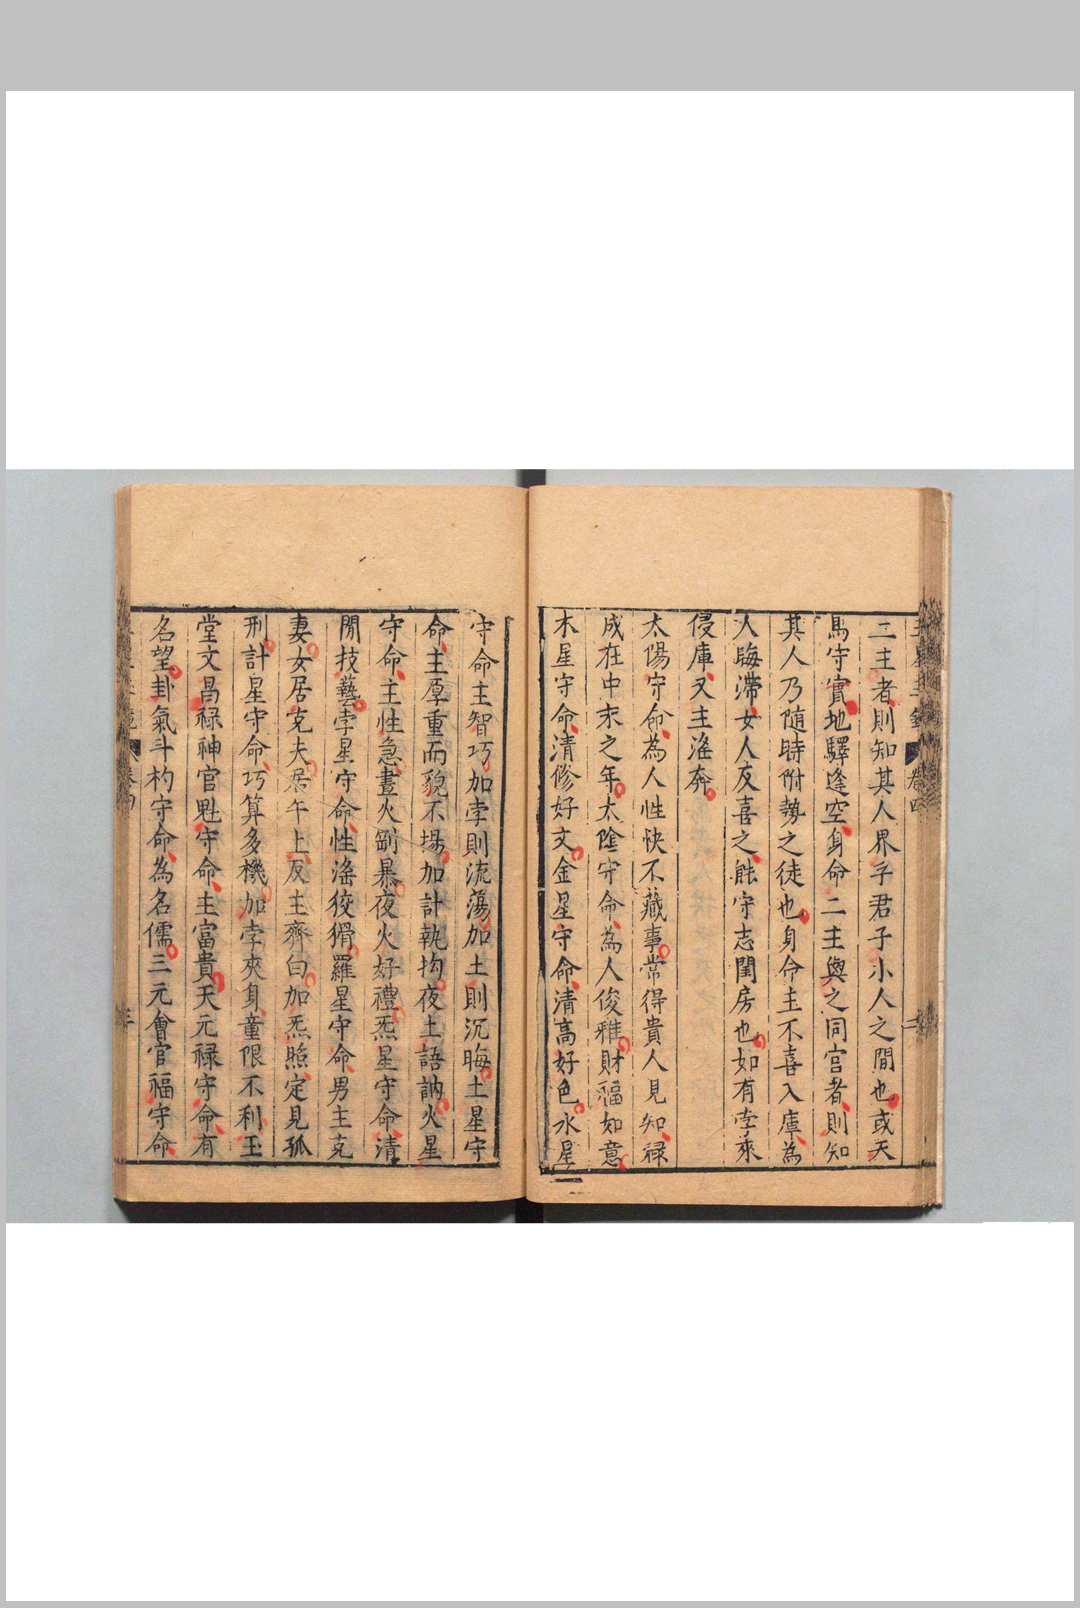 二主者則知其人界乎君子小人之間也或天
馬守實地驛逢空身命二主與之同宫者則知
其人乃隨時附勢之徒也身命主不喜入庫為
人晦滯女人反喜之能守志閨房也如有孛乘
侵庫又主淫奔
太陽守命為人性快不藏事常得貴人見知祿
成在中末之年太陰守命為人俊雅財福如意
木星守命清修好文金星守命清高好色水星
守命主智巧加孛則流蕩加土則沉晦土星守
命主厚重而貌不揚加計執拘夜土語訥火星
守命主性急晝火剛暴夜火好禮炁星守命清
閒技藝孛星守命性淫狡猾羅星守命男主克
妻女居克夫居午上反主齊白加炁照定見孤
刑計星守命巧算多機加孛夾身童限不利玉
堂文昌祿神官魁守命主富貴天元祿守命有
名望卦氣斗杓守命為名儒三元會官福守命
卷四
二
三